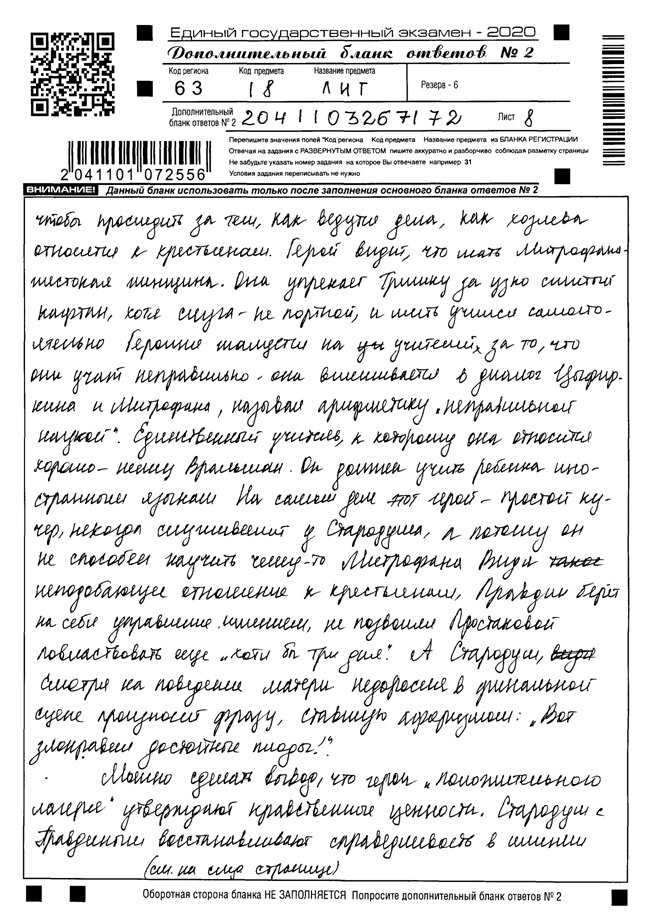 Единый государственный экзамен - 2020
Дополнительный бланк ответов № 2
Код региона Код предмета Название предмета
63 18 ЛИТ Резерв - 6
Дополнительный бланк ответов № 2 2041103267172 Лист 8
Перепишите значения полей "Код региона Код предмета Название предмета из БЛАНКА РЕГИСТРАЦИИ
Отвечая на задания с РАЗВЕРНУТЫМ ОТВЕТОМ пишите аккуратно и разборчиво соблюдая разметку страницы
Не забудьте указать номер задания на которое Вы отвечаете например 31
Условия задания переписывать не нужно
2 041101 072556
ВНИМАНИЕ! Данный бланк использовать только после заполнения основного бланка ответов № 2
чтобы проследить за тем, как ведутся дела, как хозяева
относятся к крестьянам. Герой видит, что мать Митрофана-
жестокая женщина. Она упрекает Тришку за узко сшитый
кафтан, хотя слуга - не портной, и шить учился самосто-
ятельно Героиня жалуется на учителей, за то, что
они учат неправильно - она вмешивается в диалог Цыфир-
кина и Митрофана, называя арифметику „неправильной
наукой“. Единственный учитель, к которому она относится
хорошо - немец Вральман. Он должен учить ребенка ино-
странным языкам На самом деле этот герой - простой ку-
чер, некогда служивший у Стародума, а потому он
не способен научить чему-то Митрофана Видя такое
неподобающее отношение к крестьянам, Правдин берёт
на себя управление имением, не позволяя Простаковой
повластвовать еще „хотя бы три дня“. А Стародум, видя
смотря на поведение матери недоросля в финальной
сцене произносит фразу, ставшую афоризмом: „Вот
злонравия достойные плоды!“.
Можно сделать вывод, что герои „положительного
лагеря“ утверждают нравственные ценности. Стародум с
Правдиным восстанавливают справедливость в имении
(см. на след странице)
Оборотная сторона бланка НЕ ЗАПОЛНЯЕТСЯ Попросите дополнительный бланк ответов № 2